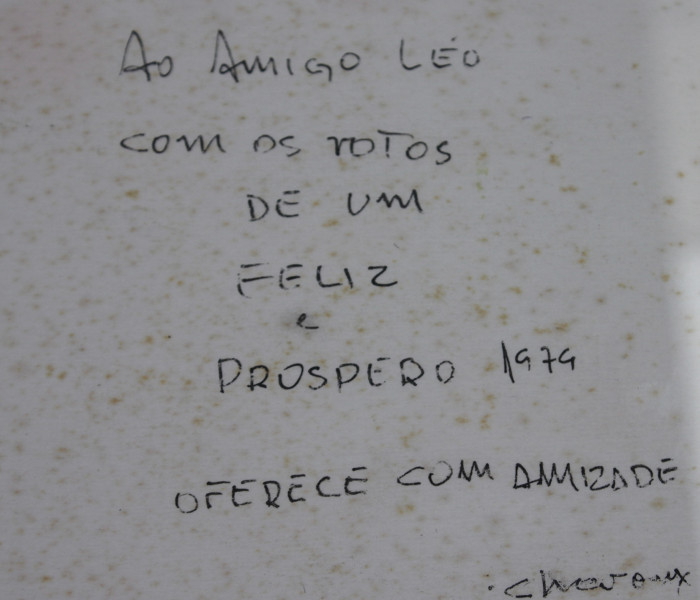 AO AMIGO LÉO
COM OS VOTOS
DE UM
FELIZ
e
PROSPERO 1979
OFERECE COM AMIZADE